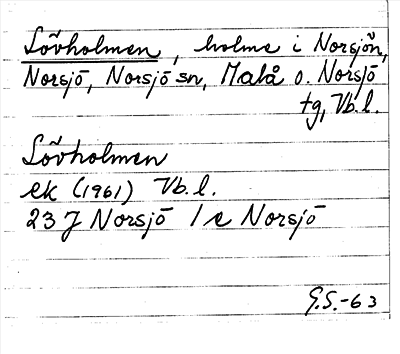 Lövholmen, holme i Norsjön,
Norsjö, Norsjö sn, Malå o. Norsjö
tg, Vb. l.
Lövholmen
ek (1961) Vb. l.
23 J Norsjö 1 e Norsjö
G.S.-63